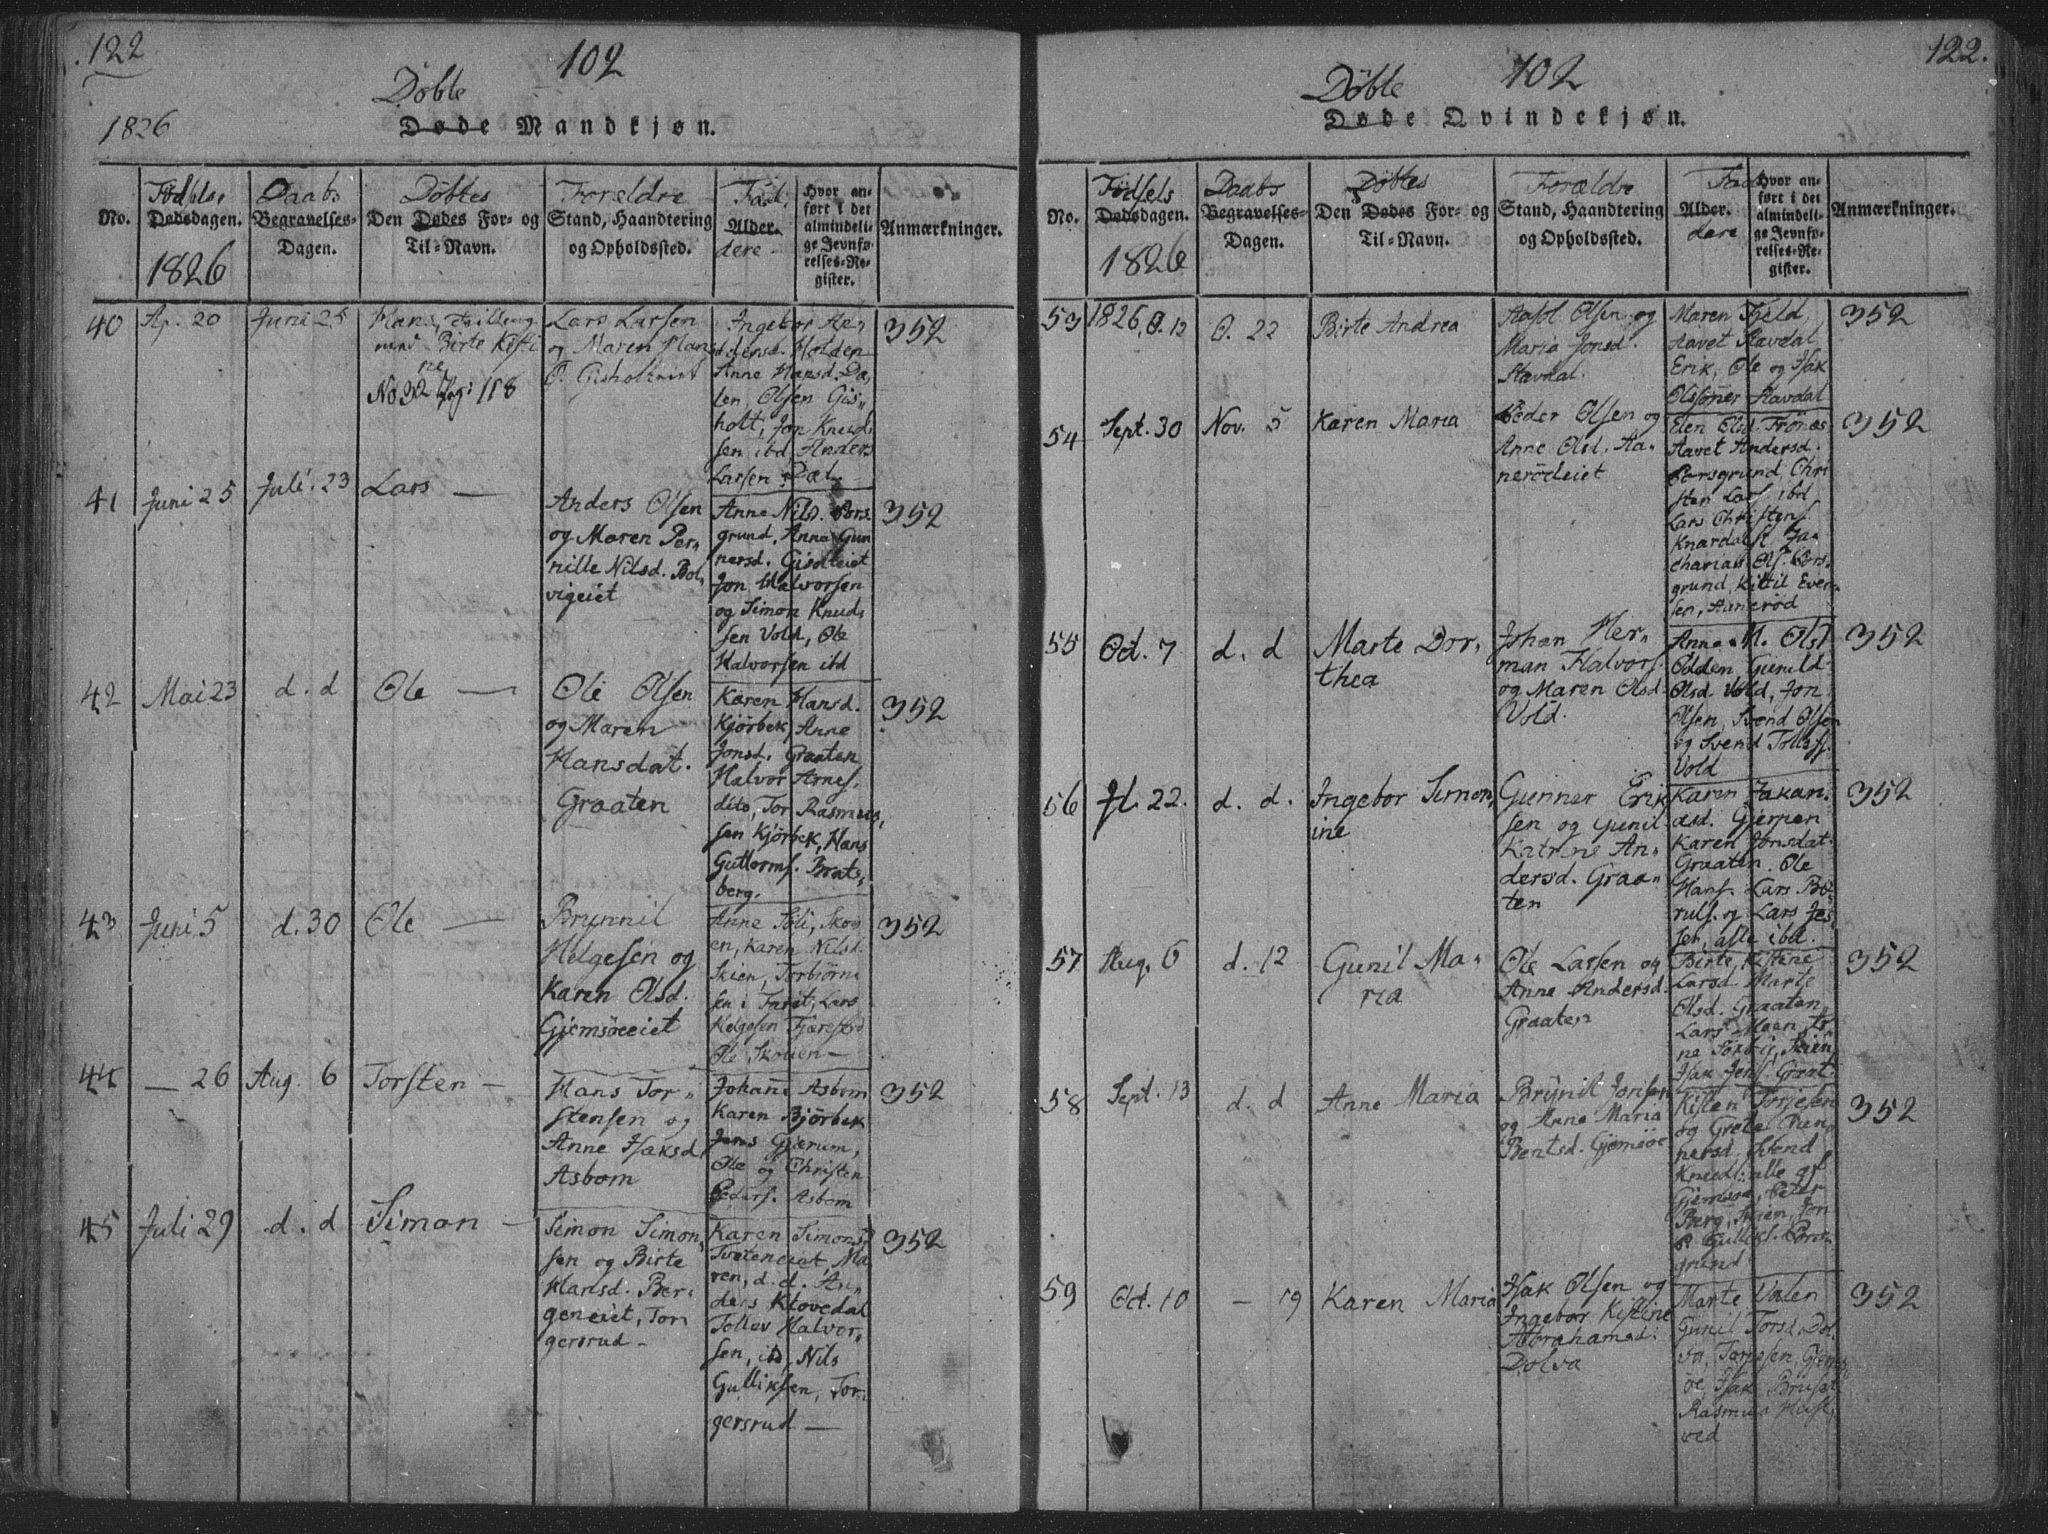 122
102
Döbte
1826
Døde Mandkjøn.
No.
Födsels
Dødsdagen.
1826
Daabs
Begravelses-
Dagen.
Döbtes
Den Dødes For- og
Til-Navn.
Forældre
Stand, Haandtering
og Opholdssted.
Fad
Alder.
dere
Hvor an-
ført i det
almindeli-
ge Jevnfø-
relses-Re-
gister.
Anmærkninger.
40
Ap. 20
Juni 25
Hans, Tvilling
med Birte Kisti
ne
No 32 Pag: 118
Lars Larsen
og Maren Hans
d. Gisholteiet
Ingebor An,
dersd. Holden
Anne Hansd. Da,
len, Olsen Gis,
holt, Jon Knud,
sen ibd Anders
Larsen Dæl.
352
41
Juni 25
Juli. 23
Lars —
Anders Olsen
og Maren Per,
nille Nilsd. Bol,
vigeiet
Anne Nilsd. Pors
grund, Anna Gun
nersd. Gisolteiet
Jon Halvorsen
og Simon Knud,
sen Vold, Ole
Halvorsen ibd
352
42
Mai 23
d. d
Ole —
Ole Olsen
og Maren
Hansdat.
Graaten
Karen Hansd.
Kjörbek, Anne
Jonsd. Graaten
Halvor Arnes,
dito, Tor Rasmus,
sen Kjörbek, Hans
Guttorms. Brats,
berg.
352
43
Juni 5
d. 30
Ole —
Brynnil
Helgesen og
Karen Olsd.
Gjemsöeeiet
Anne Soli, Skou
en, Karen Nilsd.
Skien, Torbjörn
Lars
Helgesen
Ole Skouen —
352
44
— 26
Aug. 6
Torsten —
Hans Tor,
stensen og
Anne Isaksd.
Asbom
Johane Asbom
Karen Bjorbek
Jens Gjerum,
Ole og Christen
Peders. Asbom
352
45
Juli 29
d. d
Simon —
Simon Simon,
sen og Birte
Hansd. Ber,
geneiet, Tor
gersrud —
Karen Simonsd
Tveteneiet, Ma
ren, d. d. An,
ders Klovedal
Tollev Halvor,
sen, ibd, Nils
Gulliksen, Tor,
gersrud —
352
122.
102
Döbte
Døde Qvindekjøn.
No.
Födsels
Dødsdagen.
1826
Daabs
Begravelses-
Dagen.
Döbtes
Den Dødes For- og
Til-Navn.
Forældre
Stand, Haandtering
og Opholdssted.
Fad
Alder.
dere
Hvor an-
ført i det
almindeli-
ge Jevnfø-
relses-Re-
gister.
Anmærkninger.
53
1826, O. 12
O. 22
Birte Andrea
Aasol Olsen og
Maria Jonsd.
Stavdal.
Maren Fjeld,
Aavet Stavdal
Erik, Ole og Isak
Olssöner Stavdal
352
54
Sept. 30
Nov. 5
Karen Maria
Peder Olsen og
Anne Olsd. Aa,
nerödeiet
Elen Olsd. Frönæs
Aavet Andersd.
Porsgrund, Chri
sten Lars. ibd
Lars Christens.
Knardals. Za,
charias Ols. Pors,
grund, Kittil Ever,
sen, Aanerød
352
55
Oct. 7
d. d
Marte Dor,
thea
Johan Her,
man Halvors.
og Maren Olsd.
Vold.
Anne M. Olsd
Odden, Gunild
Olsd. Vold, Jon
Olsen, Svend Olsen
og Svend Tollefs.
Vold
352
56
Jl. 22.
d. d.
Ingebor Simon,
ine
Gunner Erik
sen og Gunil
Katrine An,
dersd. Graa,
ten
Karen Jakan,
æsd. Gjerpen
Karen Jonsdat.
Graaten. Ole
Hans. Lars Bö,
ruls. og Lars Jes,
ser, alle ibd.
352
57
Aug. 6
d. 12
Gunil Ma,
ria
Ole Larsen og
Anne Andersd.
Graaten
Birte Kistine
Larsd. Marte
Olsd. Graaten
Lars Moen
Skien,
Isak Jens. Graat.
352
58
Sept. 13
d. d
Anne Maria
Brynil Jonsen
og Anne Maria
Bentsd. Gjemsöe
Kisten Torjesen
og Grete Gun,
nersd, Svend
Knuds. alle af
Gjemsöe, Peter
Berg, Skien, Jon
Gulliks. Pors,
grund
352
59
Oct. 10
— 19
Karen Maria
Isak Olsen og
Ingebor Kistine
Abrahamsd.
Dolva
Marte Valen
Gunil Torsd. Dol,
va, Torjesen, Gjems,
öe, Isak Bruset
Rasmus
ved
352